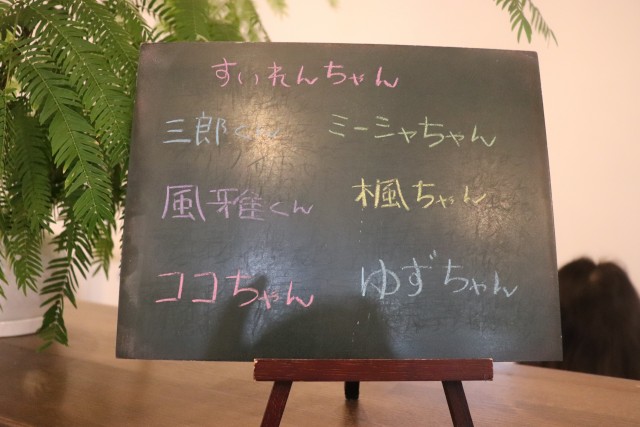 すいれんちゃん
三郎くん ミーシャちゃん
風雅くん 楓ちゃん
ココちゃん ゆずちゃん